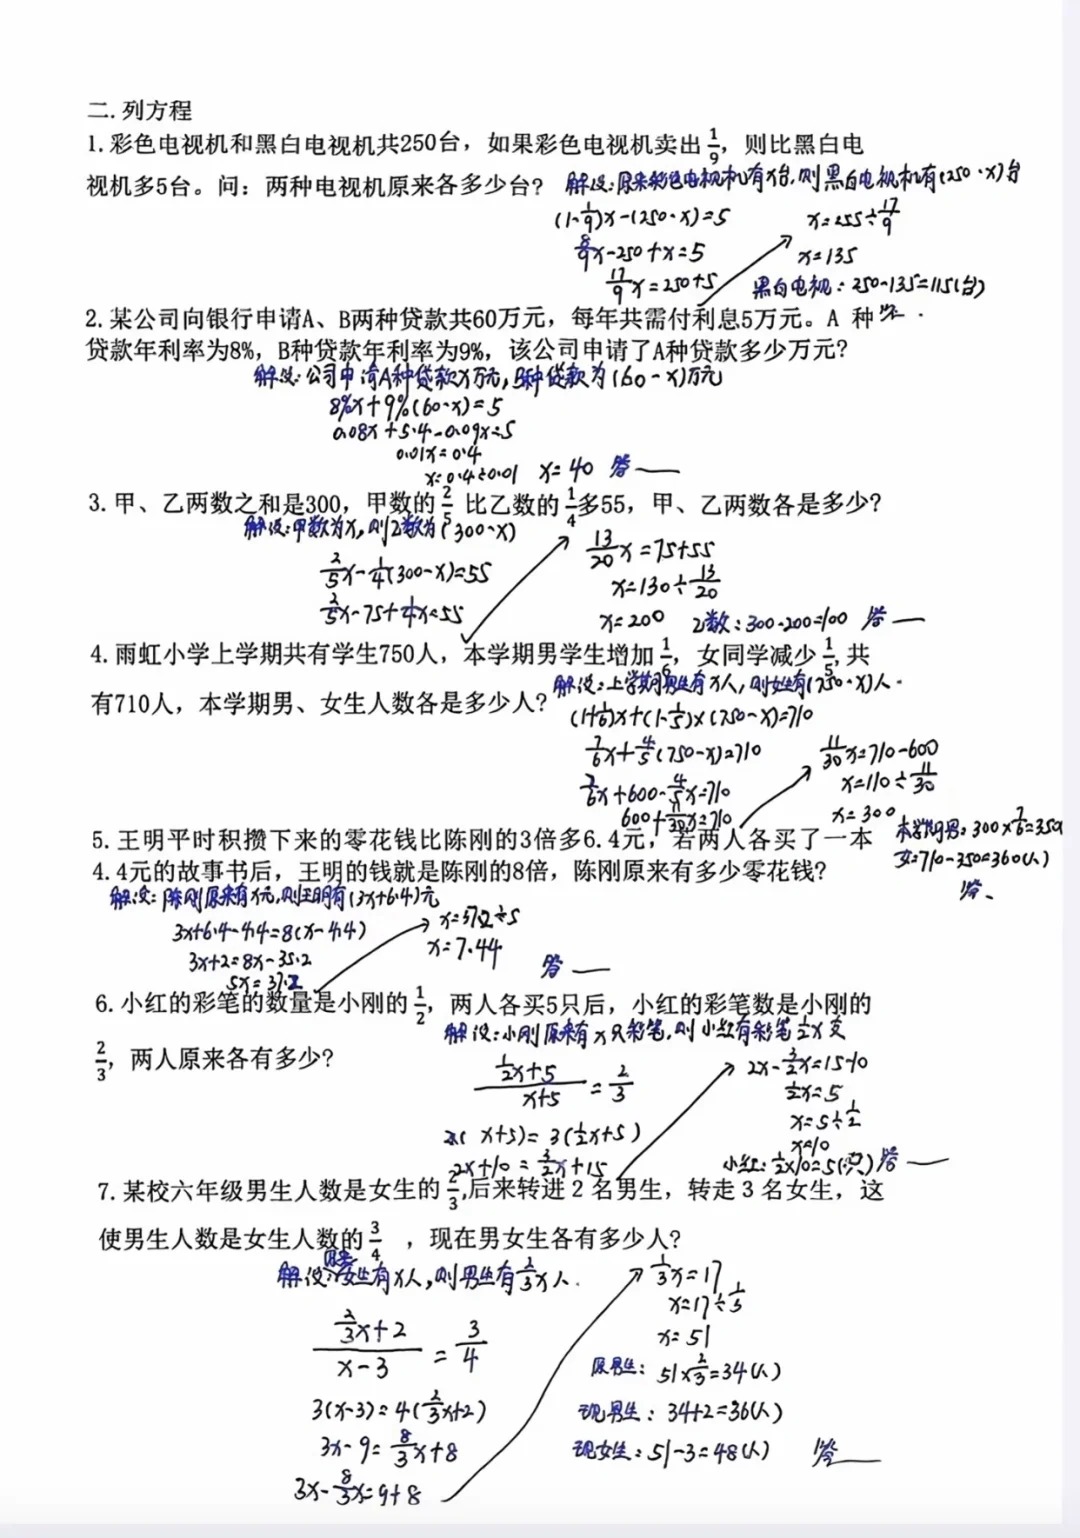 二.列方程
1.彩色电视机和黑白电视机共250台，如果彩色电视机卖出1/9，则比黑白电
视机多5台。问：两种电视机原来各多少台？
解设：原来彩色电视机有x台，则黑白电视机有(250-x)台
(1-1/9)x-(250-x)=5
8/9x-250+x=5
17/9x=250+5
x=255÷17/9
x=135
黑白电视：250-135=115(台)
答
2.某公司向银行申请A、B两种贷款共60万元，每年共需付利息5万元。A 种
贷款年利率为8%，B种贷款年利率为9%，该公司申请了A种贷款多少万元？
解设：公司申请A种贷款x万元，B种贷款为(60-x)万元
8%x+9%(60-x)=5
0.08x+5.4-0.09x=5
0.01x=0.4
x=0.4÷0.01 x=40 答
3.甲、乙两数之和是300，甲数的2/5 比乙数的1/4多55，甲、乙两数各是多少？
解设：甲数为x，则乙数为(300-x)
2/5x-1/4(300-x)=55
2/5x-75+1/4x=55
13/20x=75+55
x=130÷13/20
x=200 乙数：300-200=100 答
4.雨虹小学上学期共有学生750人，本学期男学生增加1/6，女同学减少1/5,共
有710人，本学期男、女生人数各是多少人？
解设：上学期男生有x人，则女生有(750-x)人.
(1+1/6)x+(1-1/5)x(750-x)=710
7/6x+4/5(750-x)=710
7/6x+600-4/5x=710
600+11/30x=710
11/30x=710-600
x=110÷11/30
x=300
本学期男：300×7/6=350
女=710-350=360(人)
答、
5.王明平时积攒下来的零花钱比陈刚的3倍多6.4元，若两人各买了一本
4.4元的故事书后，王明的钱就是陈刚的8倍，陈刚原来有多少零花钱？
解设：陈刚原来有x元，则王明有(3x+6.4)元
3x+6.4-4.4=8(x-4.4)
3x+2=8x-35.2
5x=37.2
x=37.2÷5
x=7.44
答
6.小红的彩笔的数量是小刚的1/2，两人各买5只后，小红的彩笔数是小刚的
2/3，两人原来各有多少？
解设：小刚原来有x只彩笔，则小红有彩笔1/2x支
(1/2x+5)/(x+5)=2/3
2(x+5)=3(1/2x+5)
2x+10=3/2x+15
2x-3/2x=15-10
1/2x=5
x=5÷1/2
x=10
小红：1/2x10=5(只) 答
7.某校六年级男生人数是女生的2/3,后来转进 2 名男生，转走 3 名女生，这
使男生人数是女生人数的3/4，现在男女生各有多少人？
解设：原来女生有x人，则男生有2/3x人.
(2/3x+2)/(x-3)=3/4
3(x-3)=4(2/3x+2)
3x-9=8/3x+8
3x-8/3x=9+8
1/3x=17
x=17÷1/3
x=51
原男生：51×2/3=34(人)
现男生：34+2=36(人)
现女生：51-3=48(人) 答